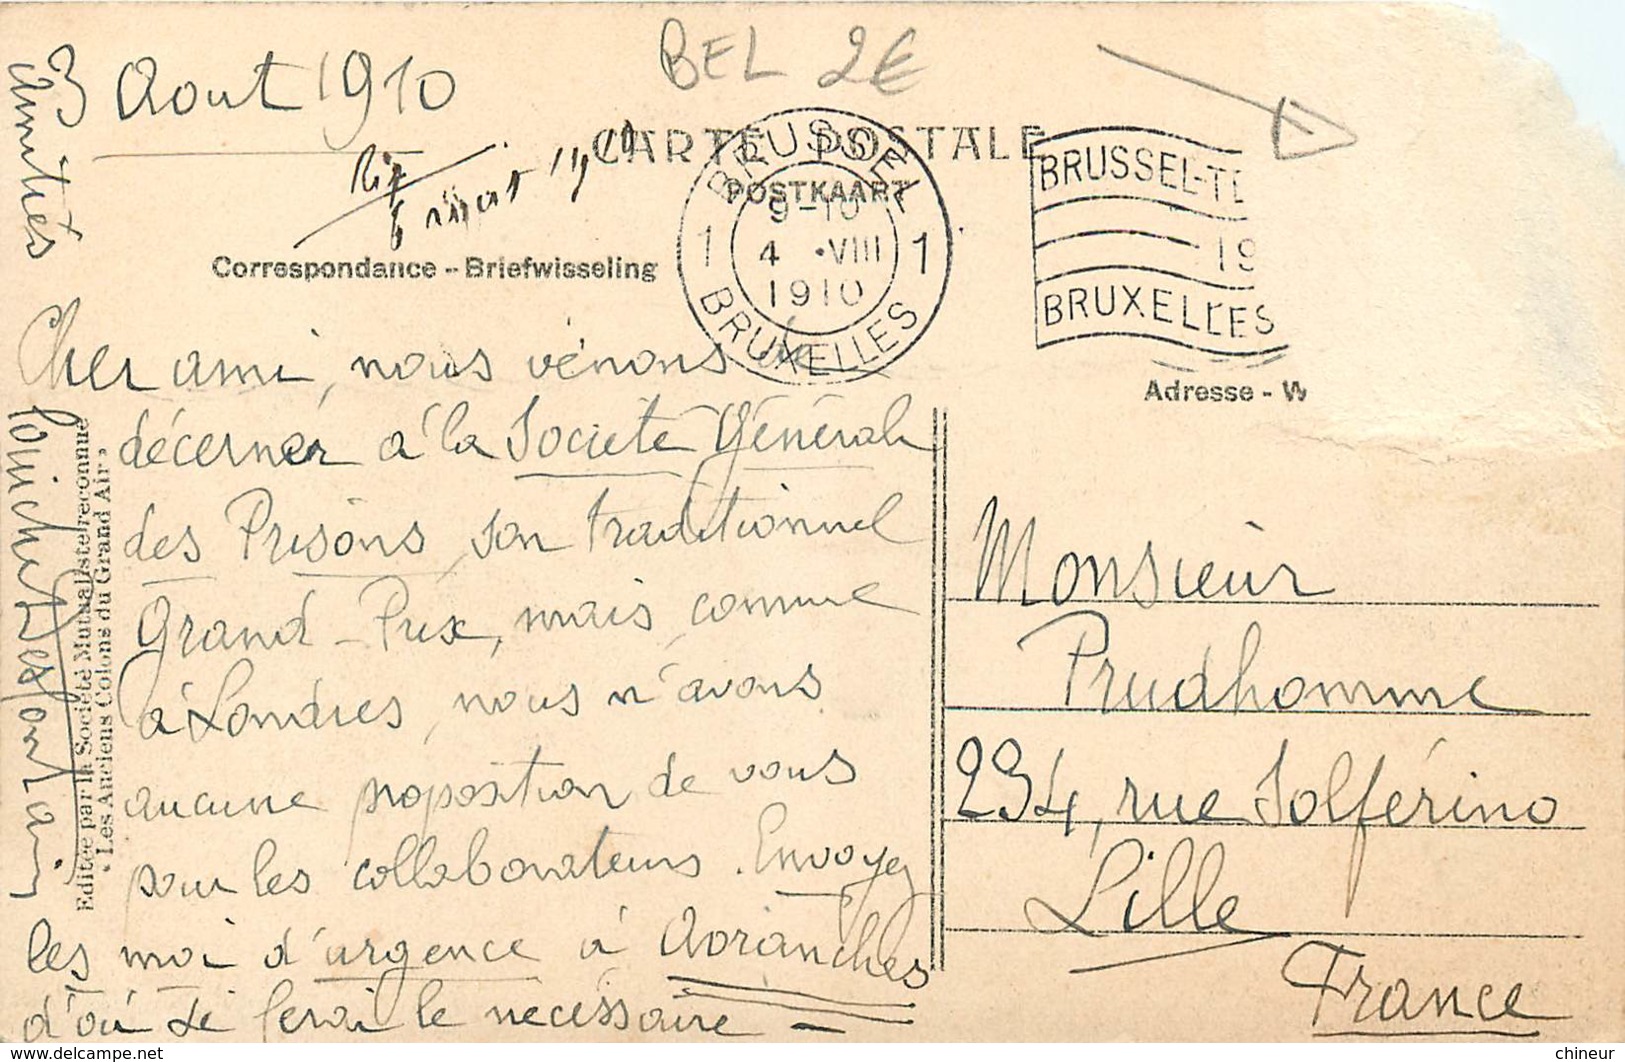 BEL 2€
3 Aout 1910
CARTE POSTALE
POSTKAART
Correspondance - Briefwisseling
BRUSSEL
1 9-10 1
4 VIII
1910
BRUXELLES
BRUSSEL-TE
19
BRUXELLES
Adresse - W
Cher ami, nous vénons de
décerner à la Société Générale
des Prisons, son traditionnel
Grand-Prix, mais, comme
à Londres, nous n'avons
aucune proposition de vous
pour les collaborateurs. Envoyez
les moi d'urgence à Avranches
d'où je ferai le nécéssaire
amitiés
Monsieur
Prudhomme
234, rue Solférino
Lille
France
Editée par la Société Mutualiste reconnue
« Les Anciens Colons du Grand Air »
delcampe.net
chineur